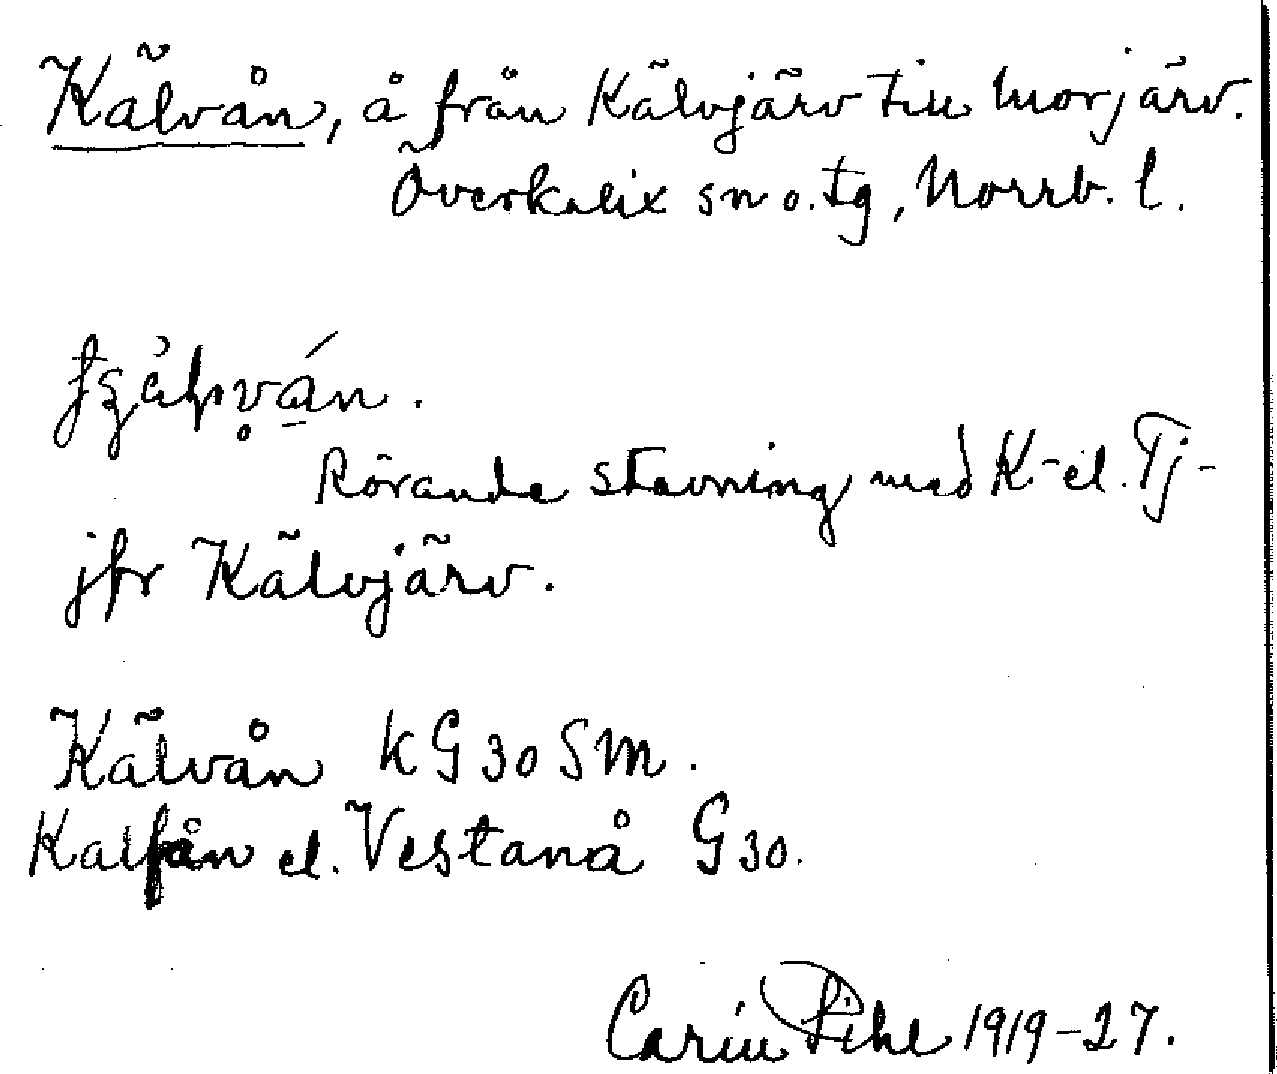 Kälvån, å från Kälvjärv till Morjärv.
Överkalix sn o. tg, Norrb. l.
Rörande stavning med K- el. Tj-
jfr Kälvjärv.
Kälvån KG 30 SM.
Kalfån el. Vestanå G 30.
Carin Pihl 1919-27.